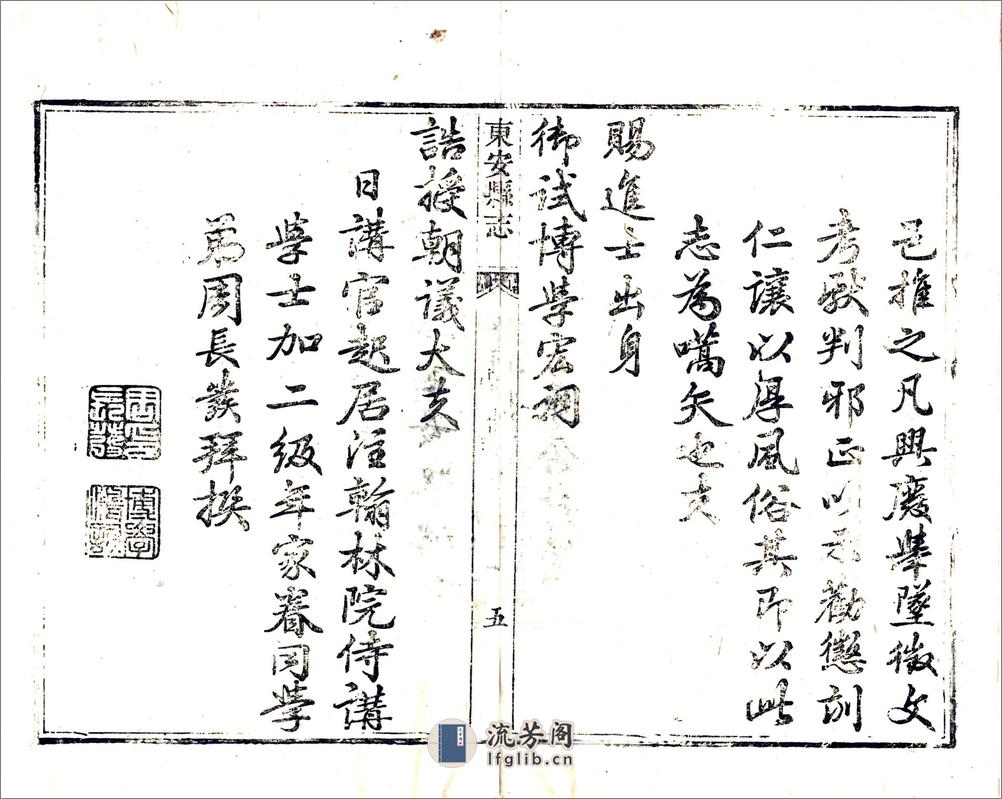 已推之凡興廢舉墜徵文
考獻判邪正以示勸懲訓
仁讓以厚風俗其即以此
志為嚆矢也夫
賜進士出身
御試博學宏詞
東安縣志
五
誥授朝議大夫
日講官起居注翰林院侍講
學士加二級年家眷同學
弟周長發拜撰
流芳阁
lfglib.cn